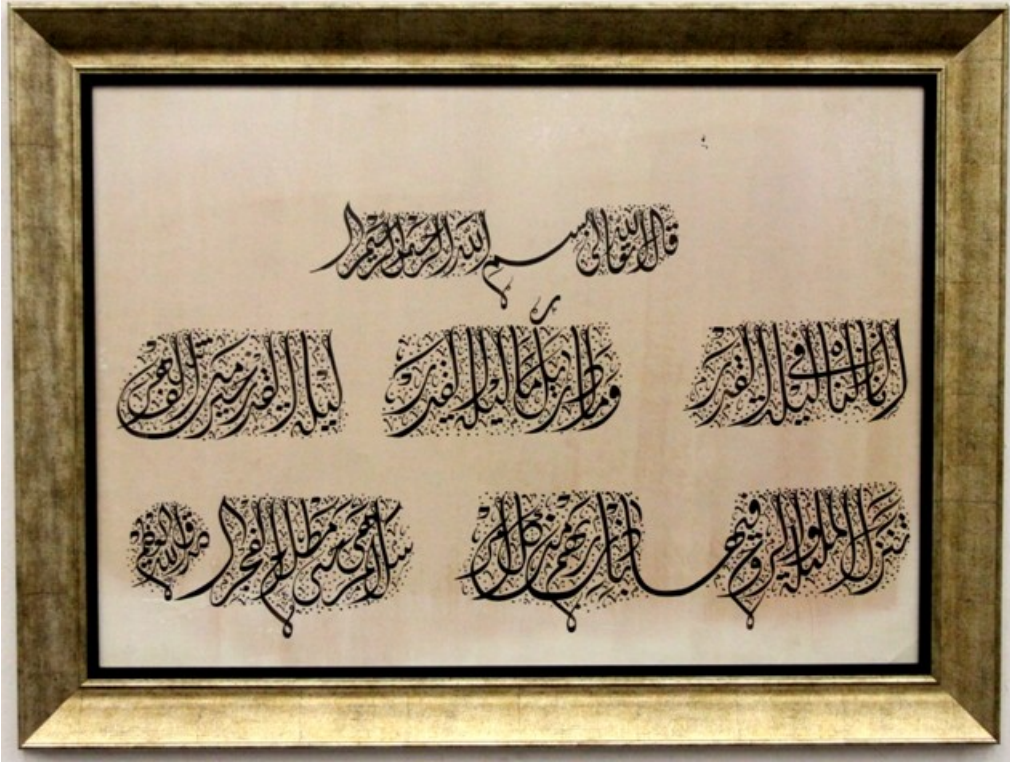 قال الله تعالى بسم الله الرحمن الرحيم
إنا أنزلناه في ليلة القدر وما أدراك ما ليلة القدر ليلة القدر خير من ألف شهر
تنزل الملائكة والروح فيها بإذن ربهم من كل أمر سلام هي حتى مطلع الفجر صدق الله العظيم